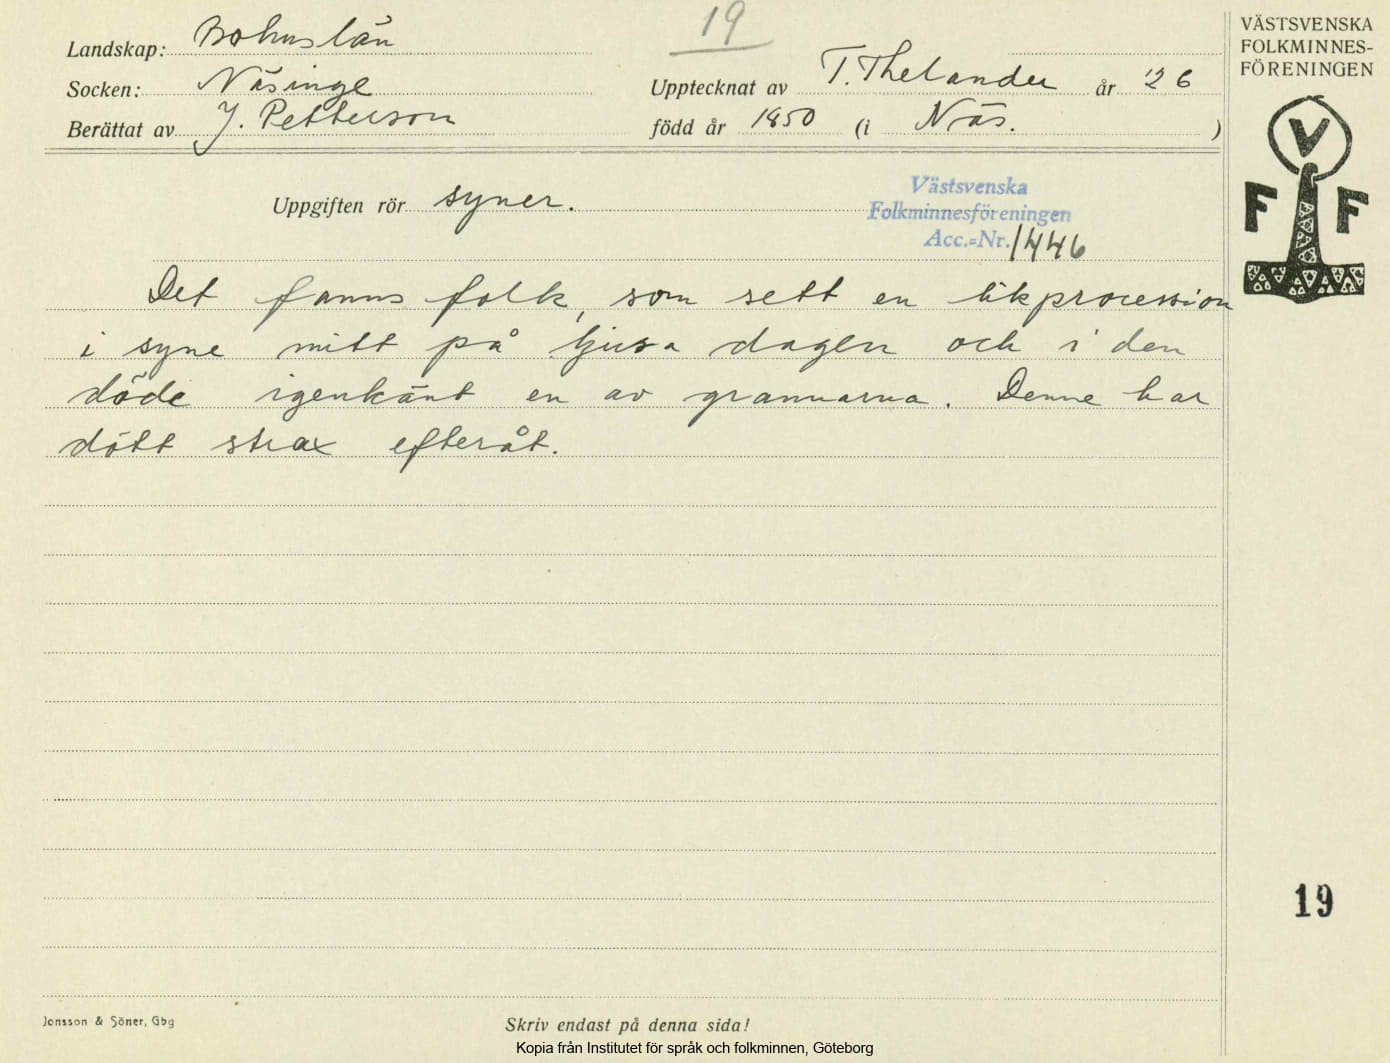 19
VÄSTSVENSKA
FOLKMINNES-
FÖRENINGEN
Landskap: Bohuslän
Socken: Näsinge
Upptecknat av T. Thelander år '26
Berättat av J. Petterson
född år 1850 (i Näs. )
V
F F
Uppgiften rör syner.
Västsvenska
Folkminnesföreningen
Acc.=Nr. 1446
Det fanns folk, som sett en likprocession
i syne mitt på ljusa dagen och i den
döde igenkänt en av grannarna. Denne har
dött strax efteråt.
19
Jonsson & Söner, Gbg
Skriv endast på denna sida!
Kopia från Institutet för språk och folkminnen, Göteborg